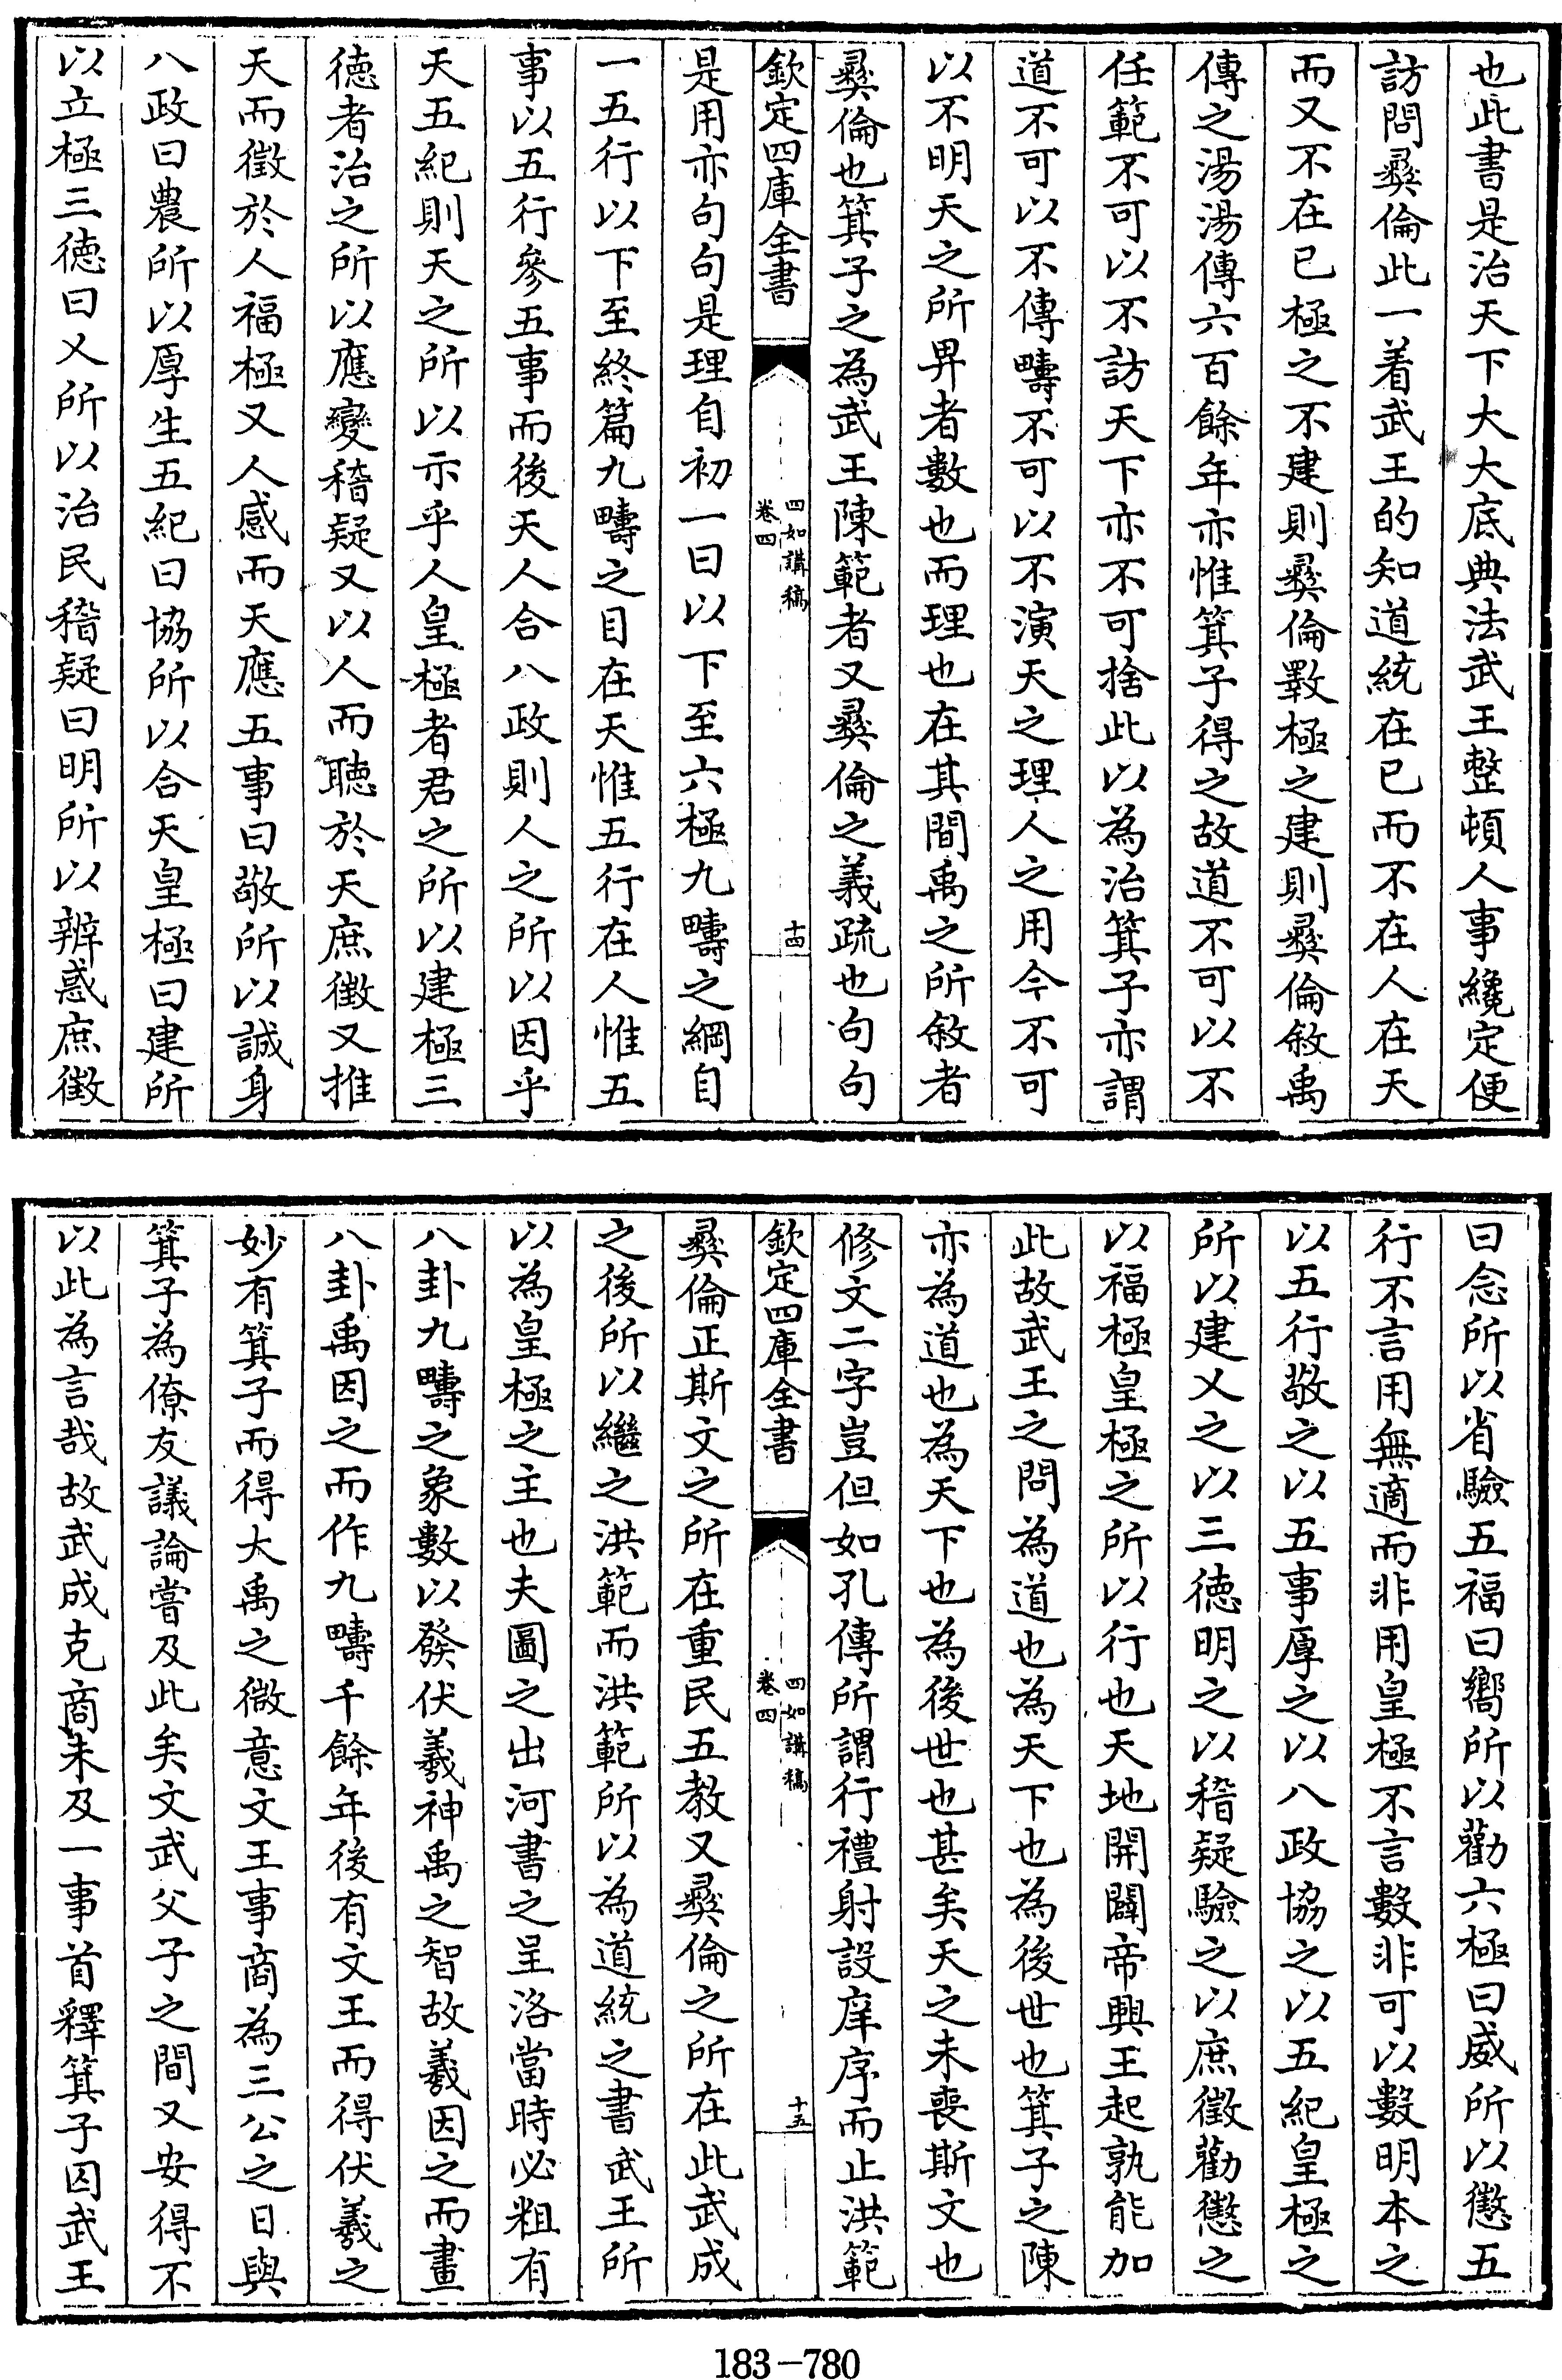 也此書是治天下大大底典法武王整頓人事纔定便
訪問彜倫此一着武王的知道統在已而不在人在天
而又不在已極之不建則彜倫斁極之建則彜倫敘禹
傳之湯湯傳六百餘年亦惟箕子得之故道不可以不
任範不可以不訪天下亦不可捨此以為治箕子亦謂
道不可以不傳疇不可以不演天之理人之用今不可
以不明天之所畀者數也而理也在其間禹之所敘者
彜倫也箕子之為武王陳範者又彜倫之義疏也句句
欽定四庫全書
四如講稿
卷四
十四
是用亦句句是理自初一曰以下至六極九疇之綱自
一五行以下至終篇九疇之目在天惟五行在人惟五
事以五行參五事而後天人合八政則人之所以因乎
天五紀則天之所以示乎人皇極者君之所以建極三
徳者治之所以應變稽疑又以人而聽於天庶徴又推
天而徵於人福極又人感而天應五事曰敬所以誠身
八政曰農所以厚生五紀曰協所以合天皇極曰建所
以立極三徳曰乂所以治民稽疑曰明所以辨惑庶徵
曰念所以省驗五福曰嚮所以勸六極曰威所以懲五
行不言用無適而非用皇極不言數非可以數明本之
以五行敬之以五事厚之以八政協之以五紀皇極之
所以建乂之以三徳明之以稽疑驗之以庶徵勸懲之
以福極皇極之所以行也天地開闢帝興王起孰能加
此故武王之問為道也為天下也為後世也箕子之陳
亦為道也為天下也為後世也甚矣天之未喪斯文也
修文二字豈但如孔傳所謂行禮射設庠序而止洪範
欽定四庫全書
四如講稿
卷四
十五
彜倫正斯文之所在重民五教又彜倫之所在此武成
之後所以繼之洪範而洪範所以為道統之書武王所
以為皇極之主也夫圖之出河書之呈洛當時必粗有
八卦九疇之象數以發伏羲神禹之智故羲因之而畫
八卦禹因之而作九疇千餘年後有文王而得伏羲之
妙有箕子而得大禹之微意文王事商為三公之日與
箕子為僚友議論嘗及此矣文武父子之間又安得不
以此為言哉故武成克商未及一事首釋箕子囚武王
183-780